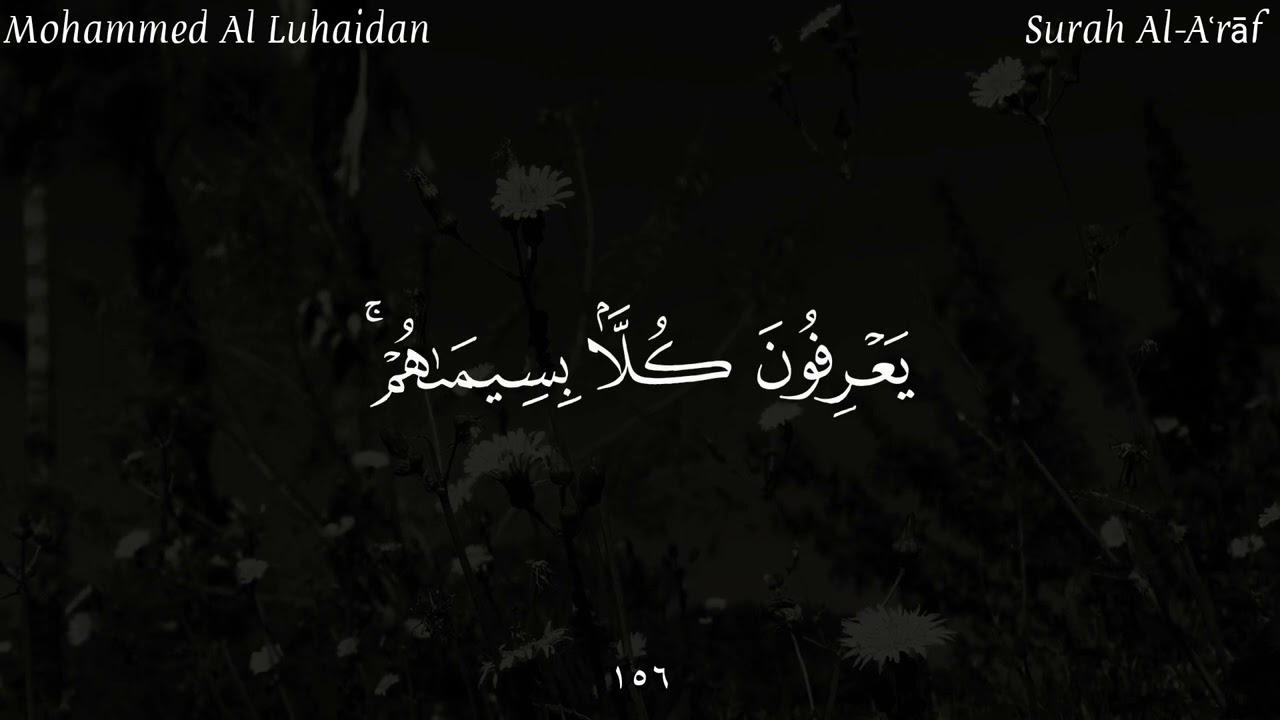 Mohammed Al Luhaidan
Surah Al-Aʿrāf
يَعۡرِفُونَ كُلَّۢا بِسِيمَىٰهُمۡۚ
١٥٦